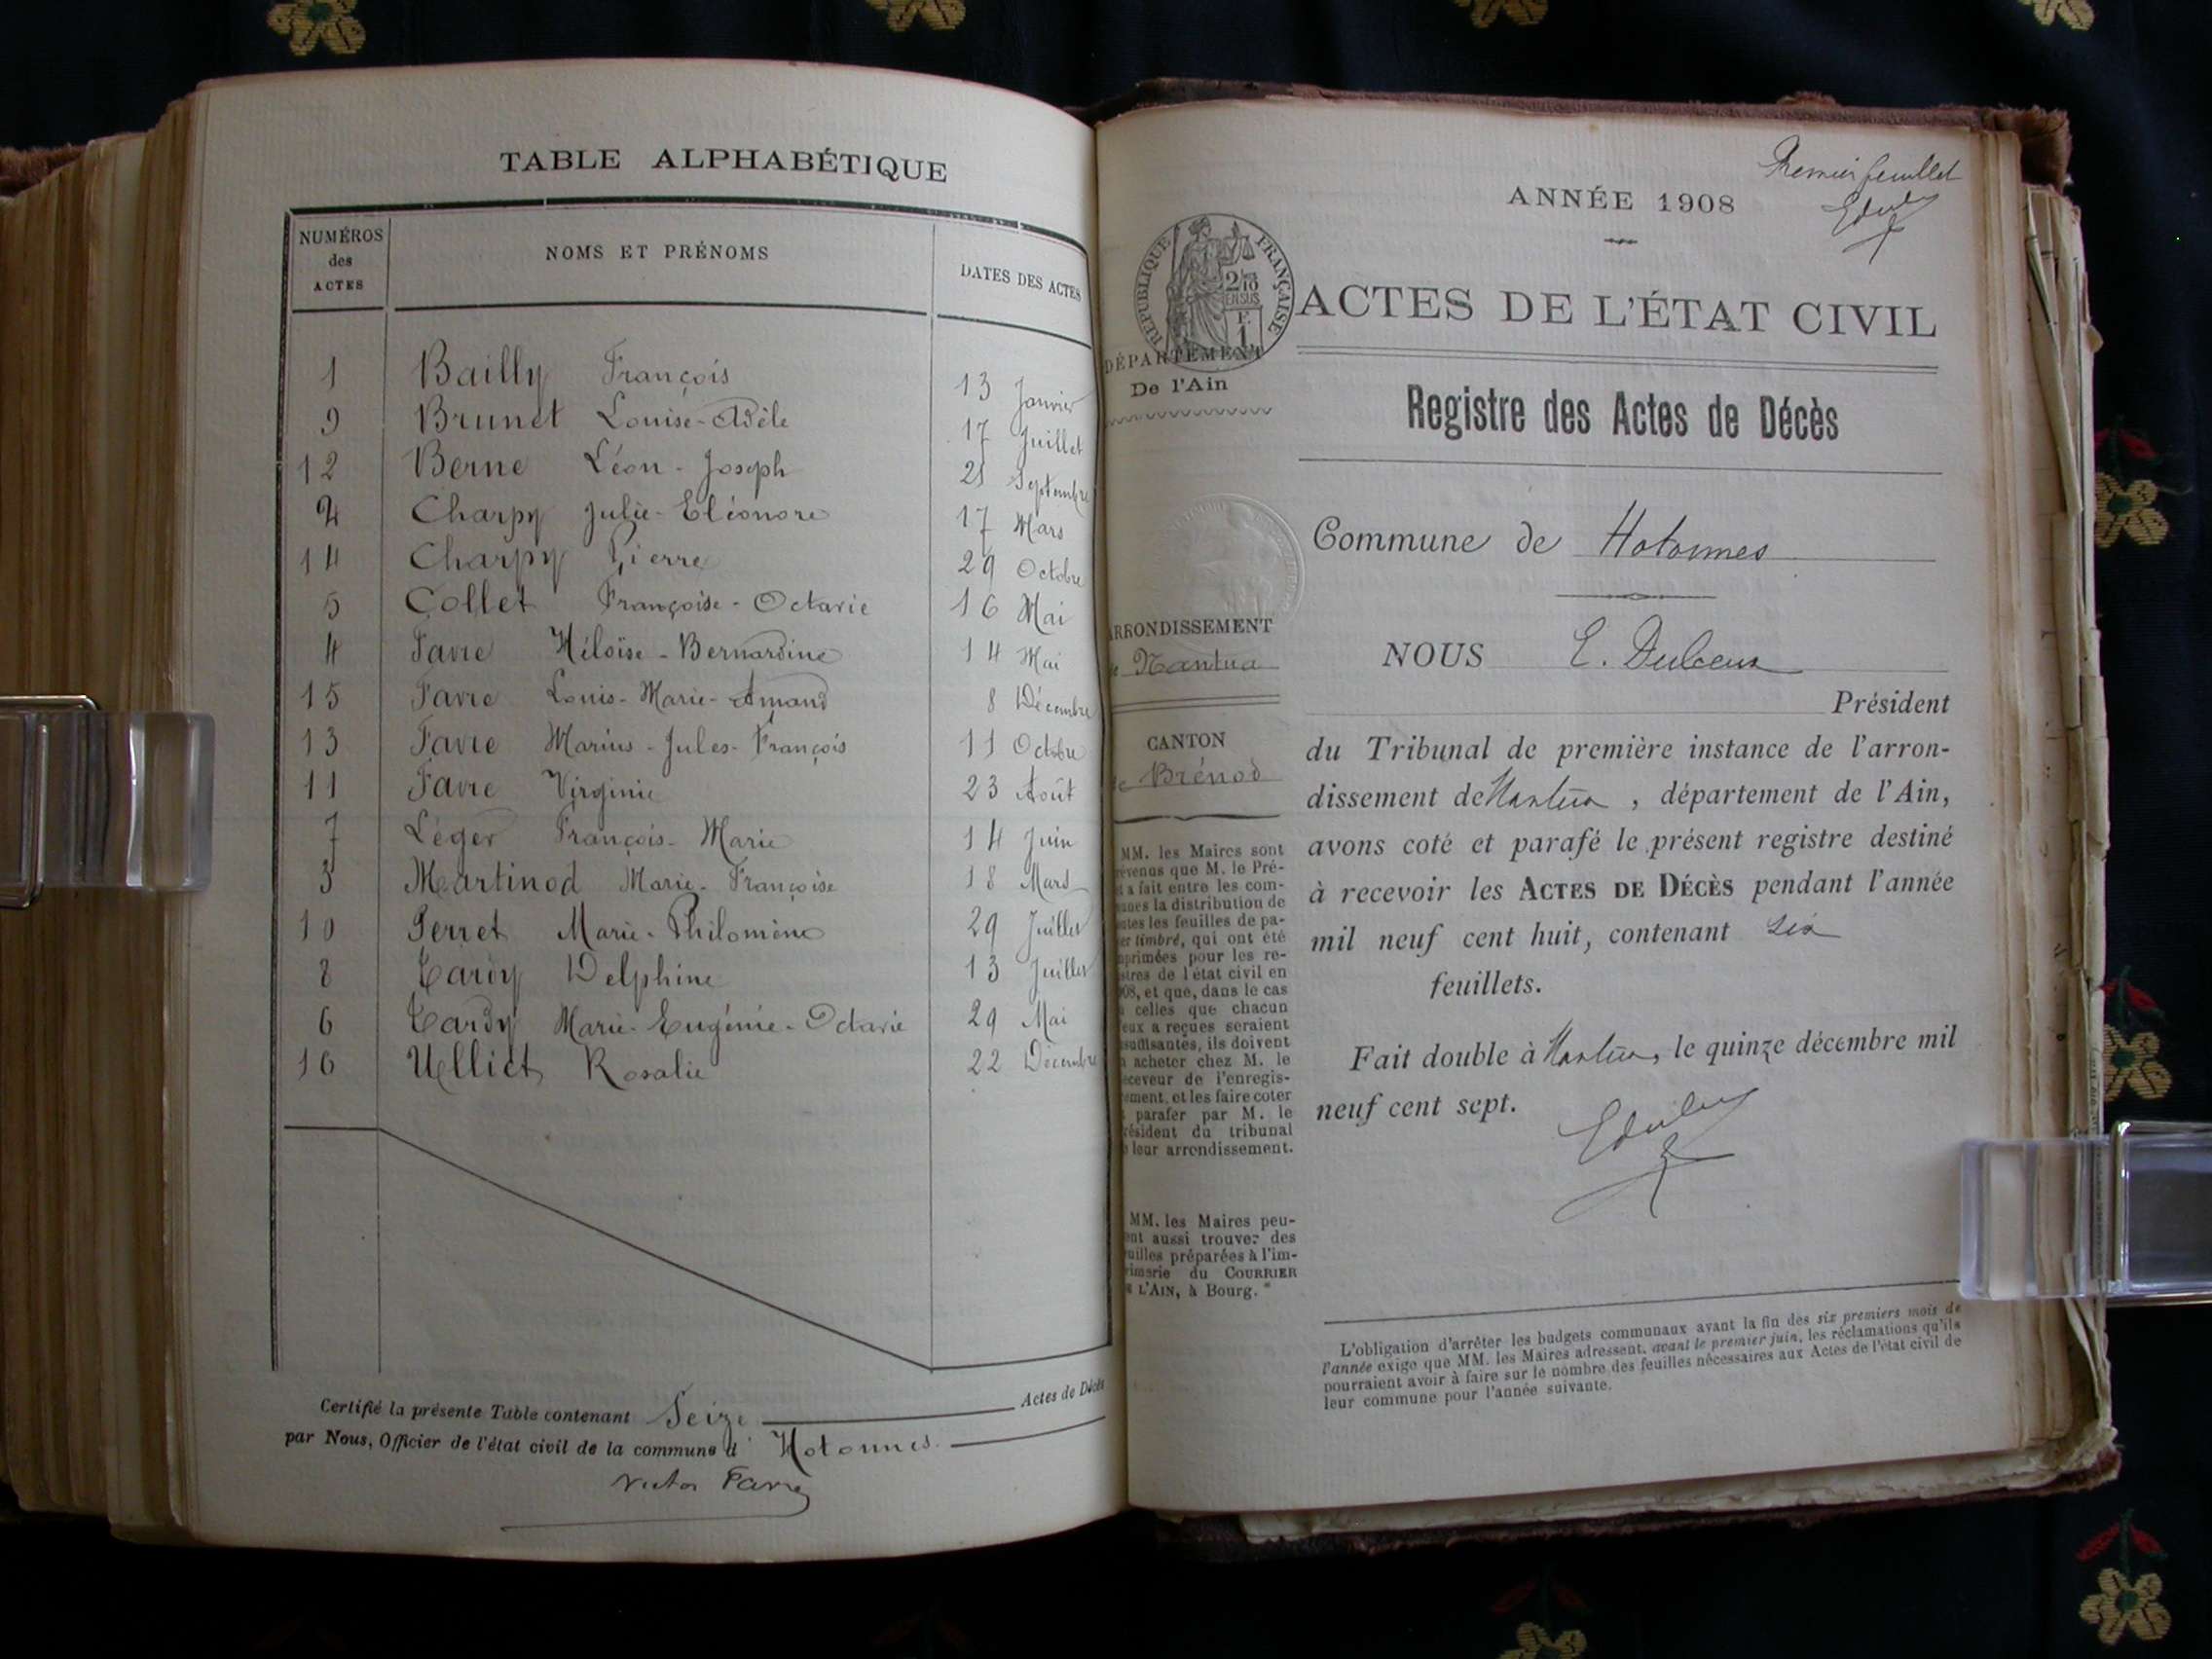 TABLE ALPHABÉTIQUE
NUMÉROS des ACTES
NOMS ET PRÉNOMS
DATES DES ACTES
1 Bailly François 13 Janvier
9 Brunet Louise-Adèle 17 Juillet
12 Berne Léon-Joseph 21 Septembre
2 Charpy Julie-Eléonore 17 Mars
14 Charpy Pierre 29 Octobre
5 Collet Françoise-Octavie 16 Mai
4 Favre Héloïse-Bernardine 14 Mai
15 Favre Louis-Marie-Amand 8 Décembre
13 Favre Marius-Jules-François 11 Octobre
11 Favre Virginie 23 Août
7 Léger François-Marie 14 Juin
3 Martinod Marie-Françoise 18 Mars
10 Perret Marie-Philomène 29 Juillet
8 Tardy Delphine 13 Juillet
6 Tardy Marie-Eugénie-Octavie 29 Mai
16 Uelliet Rosalie 22 Décembre
Certifié la présente Table contenant Seize Actes de Décès
par Nous, Officier de l'état civil de la commune d' Hotonnes.
Victor Favre
Premier feuillet
ANNÉE 1908
RÉPUBLIQUE FRANÇAISE
2/10 EN SUS
F. 1
ACTES DE L'ÉTAT CIVIL
DÉPARTEMENT
De l'Ain
Registre des Actes de Décès
Commune de Hotonnes
ARRONDISSEMENT
Nantua
NOUS E.
Président
CANTON
de Brénod
du Tribunal de première instance de l'arron-
dissement de Nantua, département de l'Ain,
avons coté et parafé le présent registre destiné
à recevoir les ACTES DE DÉCÈS pendant l'année
mil neuf cent huit, contenant six
feuillets.
Fait double à Nantua, le quinze décembre mil
neuf cent sept.
MM. les Maires sont
prévenus que M. le Pré-
a fait entre les com-
munes la distribution de
toutes les feuilles de pa-
pier timbré, qui ont été
imprimées pour les re-
gistres de l'état civil en
1908, et que, dans le cas
celles que chacun
d'eux a reçues seraient
insuffisantes, ils doivent
acheter chez M. le
receveur de l'enregis-
trement, et les faire coter
parafer par M. le
président du tribunal
leur arrondissement.
MM. les Maires peu-
vent aussi trouver des
feuilles préparées à l'im-
primerie du COURRIER
DE L'AIN, à Bourg.
L'obligation d'arrêter les budgets communaux avant la fin des six premiers mois de
l'année exige que MM. les Maires adressent, avant le premier juin, les réclamations qu'ils
pourraient avoir à faire sur le nombre des feuilles nécessaires aux Actes de l'état civil de
leur commune pour l'année suivante.